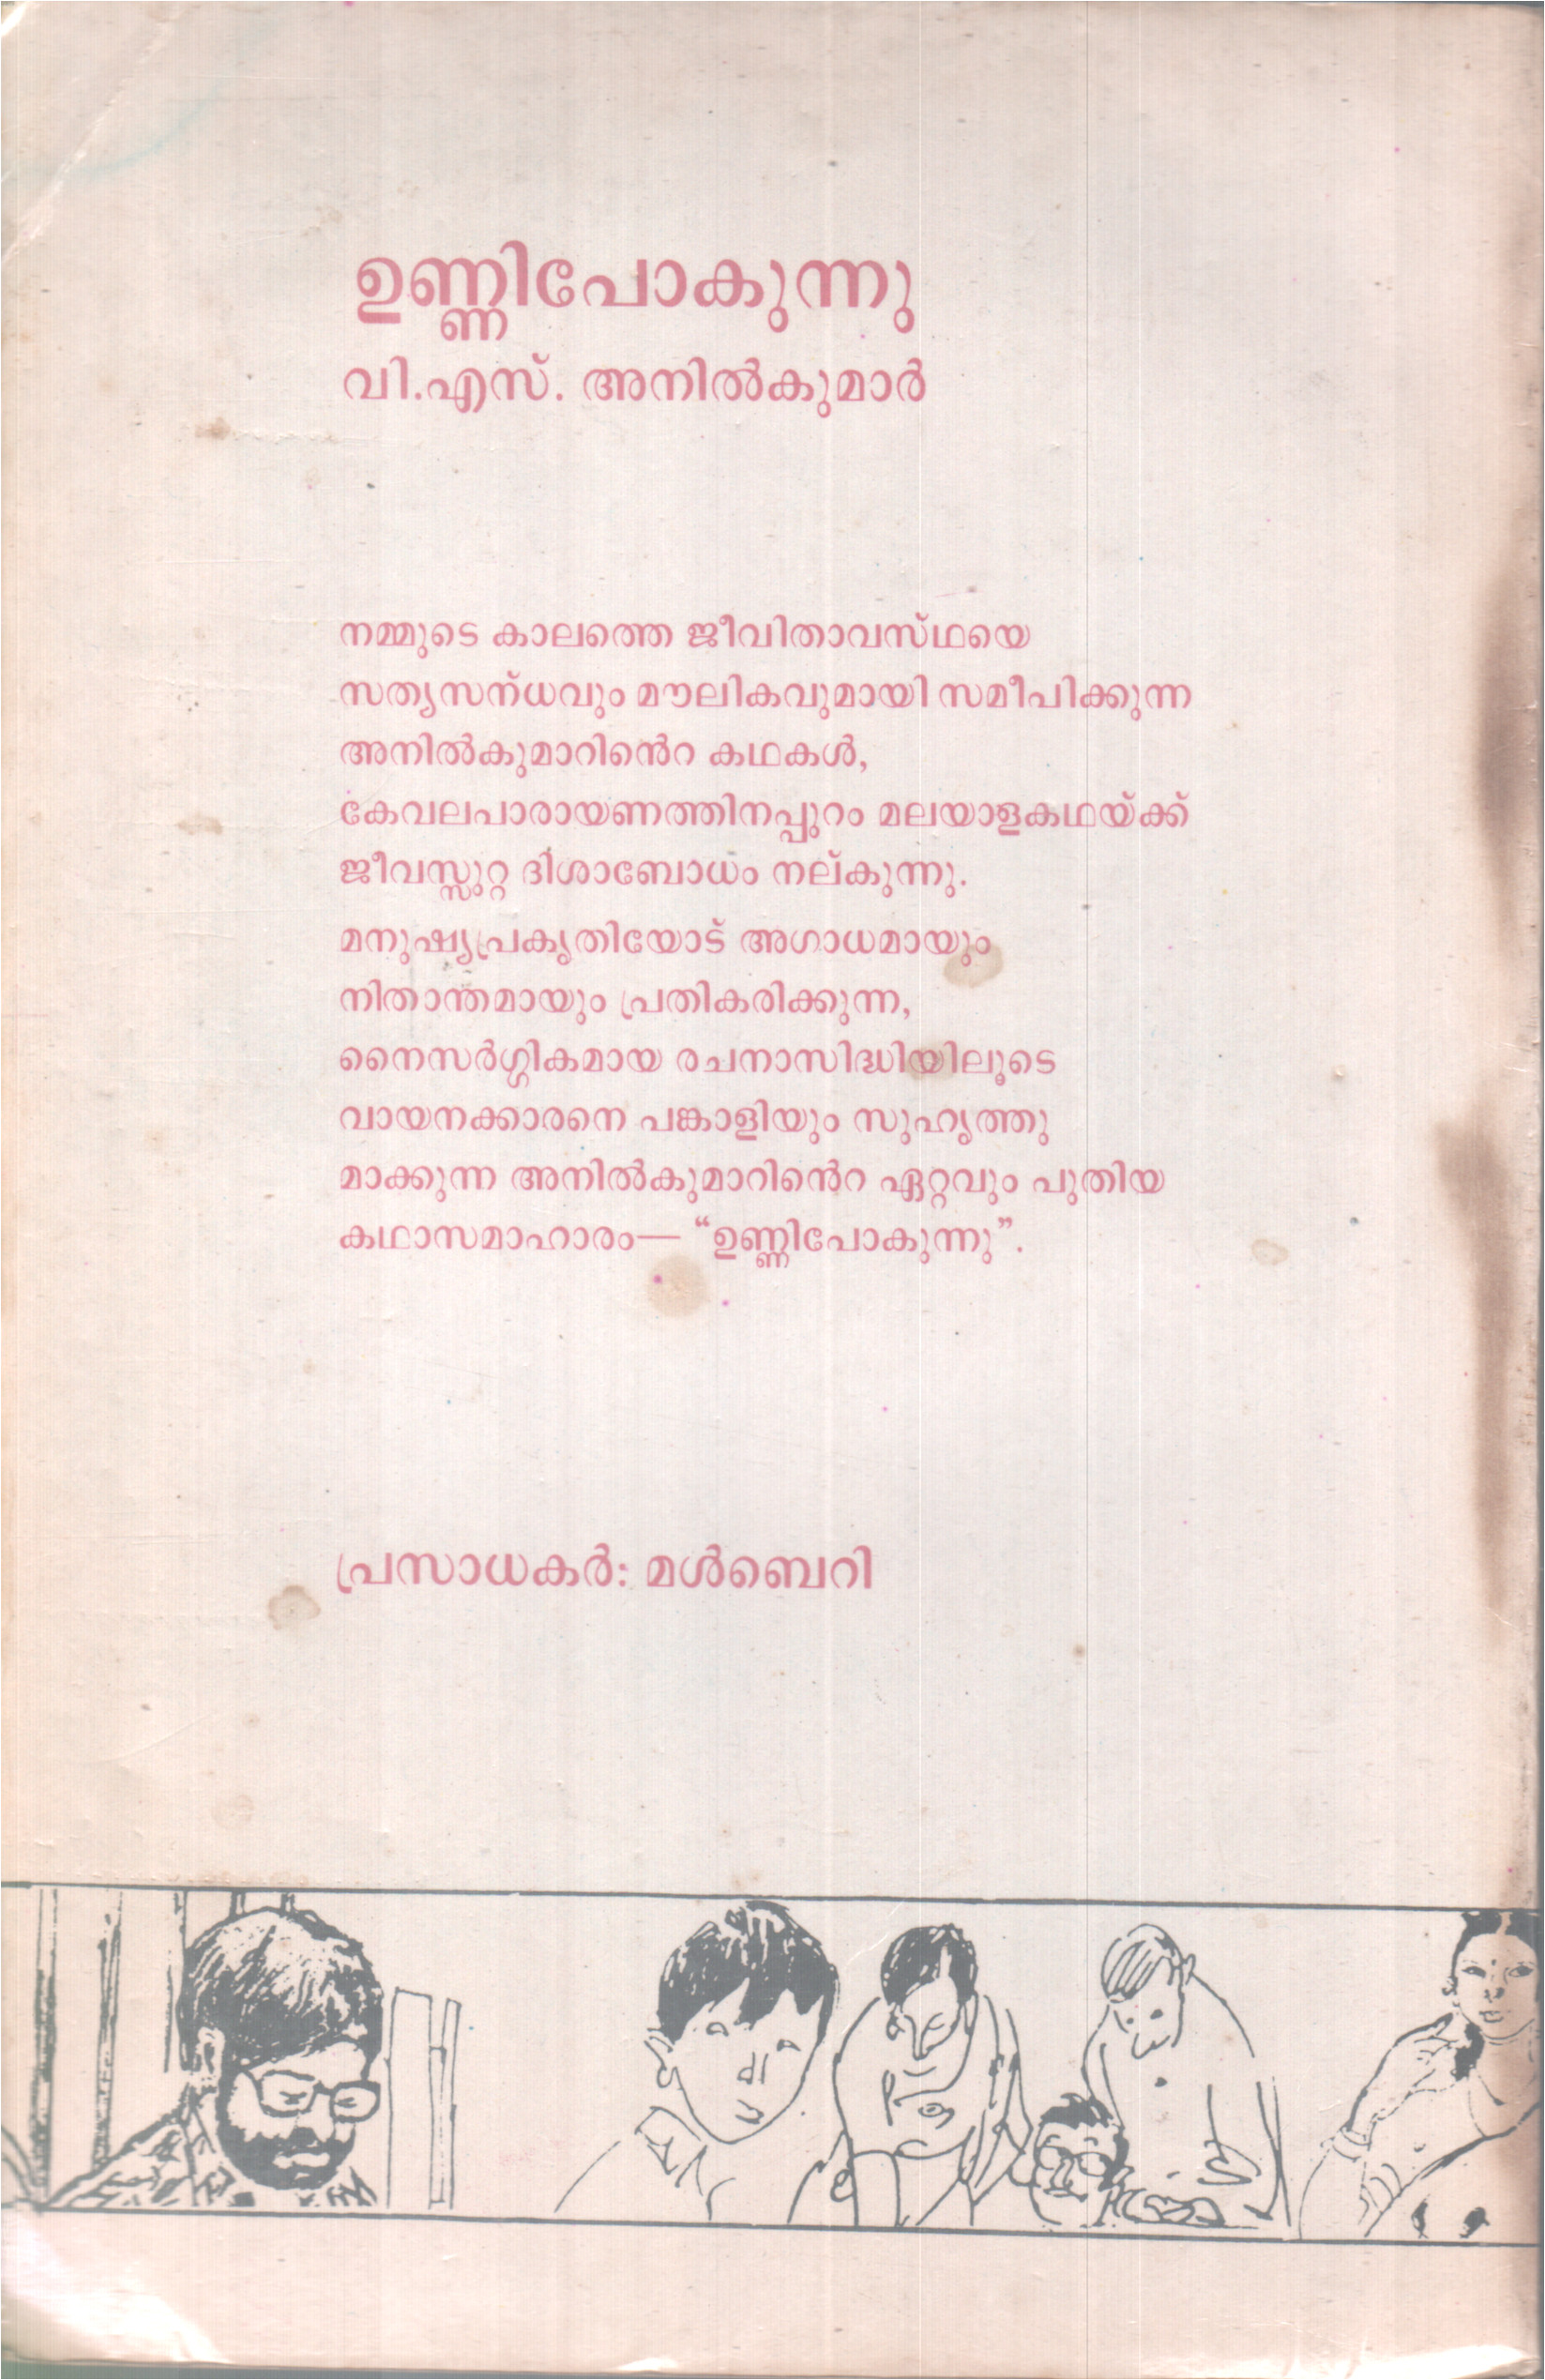 ഉണ്ണിപോകുന്നു
വി.എസ്. അനിൽകുമാർ
നമ്മുടെ കാലത്തെ ജീവിതാവസ്ഥയെ
സത്യസന്ധവും മൗലികവുമായി സമീപിക്കുന്ന
അനിൽകുമാറിൻെറ കഥകൾ,
കേവലപാരായണത്തിനപ്പുറം മലയാളകഥയ്ക്ക്
ജീവസ്സുറ്റ ദിശാബോധം നല്കുന്നു.
മനുഷ്യപ്രകൃതിയോട് അഗാധമായും
നിതാന്തമായും പ്രതികരിക്കുന്ന,
നൈസർഗ്ഗികമായ രചനാസിദ്ധിയിലൂടെ
വായനക്കാരനെ പങ്കാളിയും സുഹൃത്തു
മാക്കുന്ന അനിൽകുമാറിൻെറ ഏറ്റവും പുതിയ
കഥാസമാഹാരം— “ഉണ്ണിപോകുന്നു”.
പ്രസാധകർ: മൾബെറി